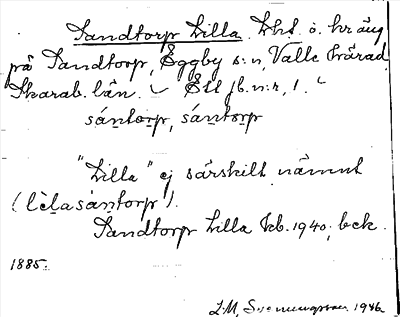 Sandtorp Lilla. Lht. o. kr äng
på Sandtorp, Eggby s:n, Valle härad,
Skarab. län. Ett jb.n:r, 1.
sántor̥p, sántor̥p
"Lilla" ej särskilt nämnt
(lèḷasántor̥p).
Sandtorp Lilla kb. 1940, bck.
1885.
L.M. 1946.